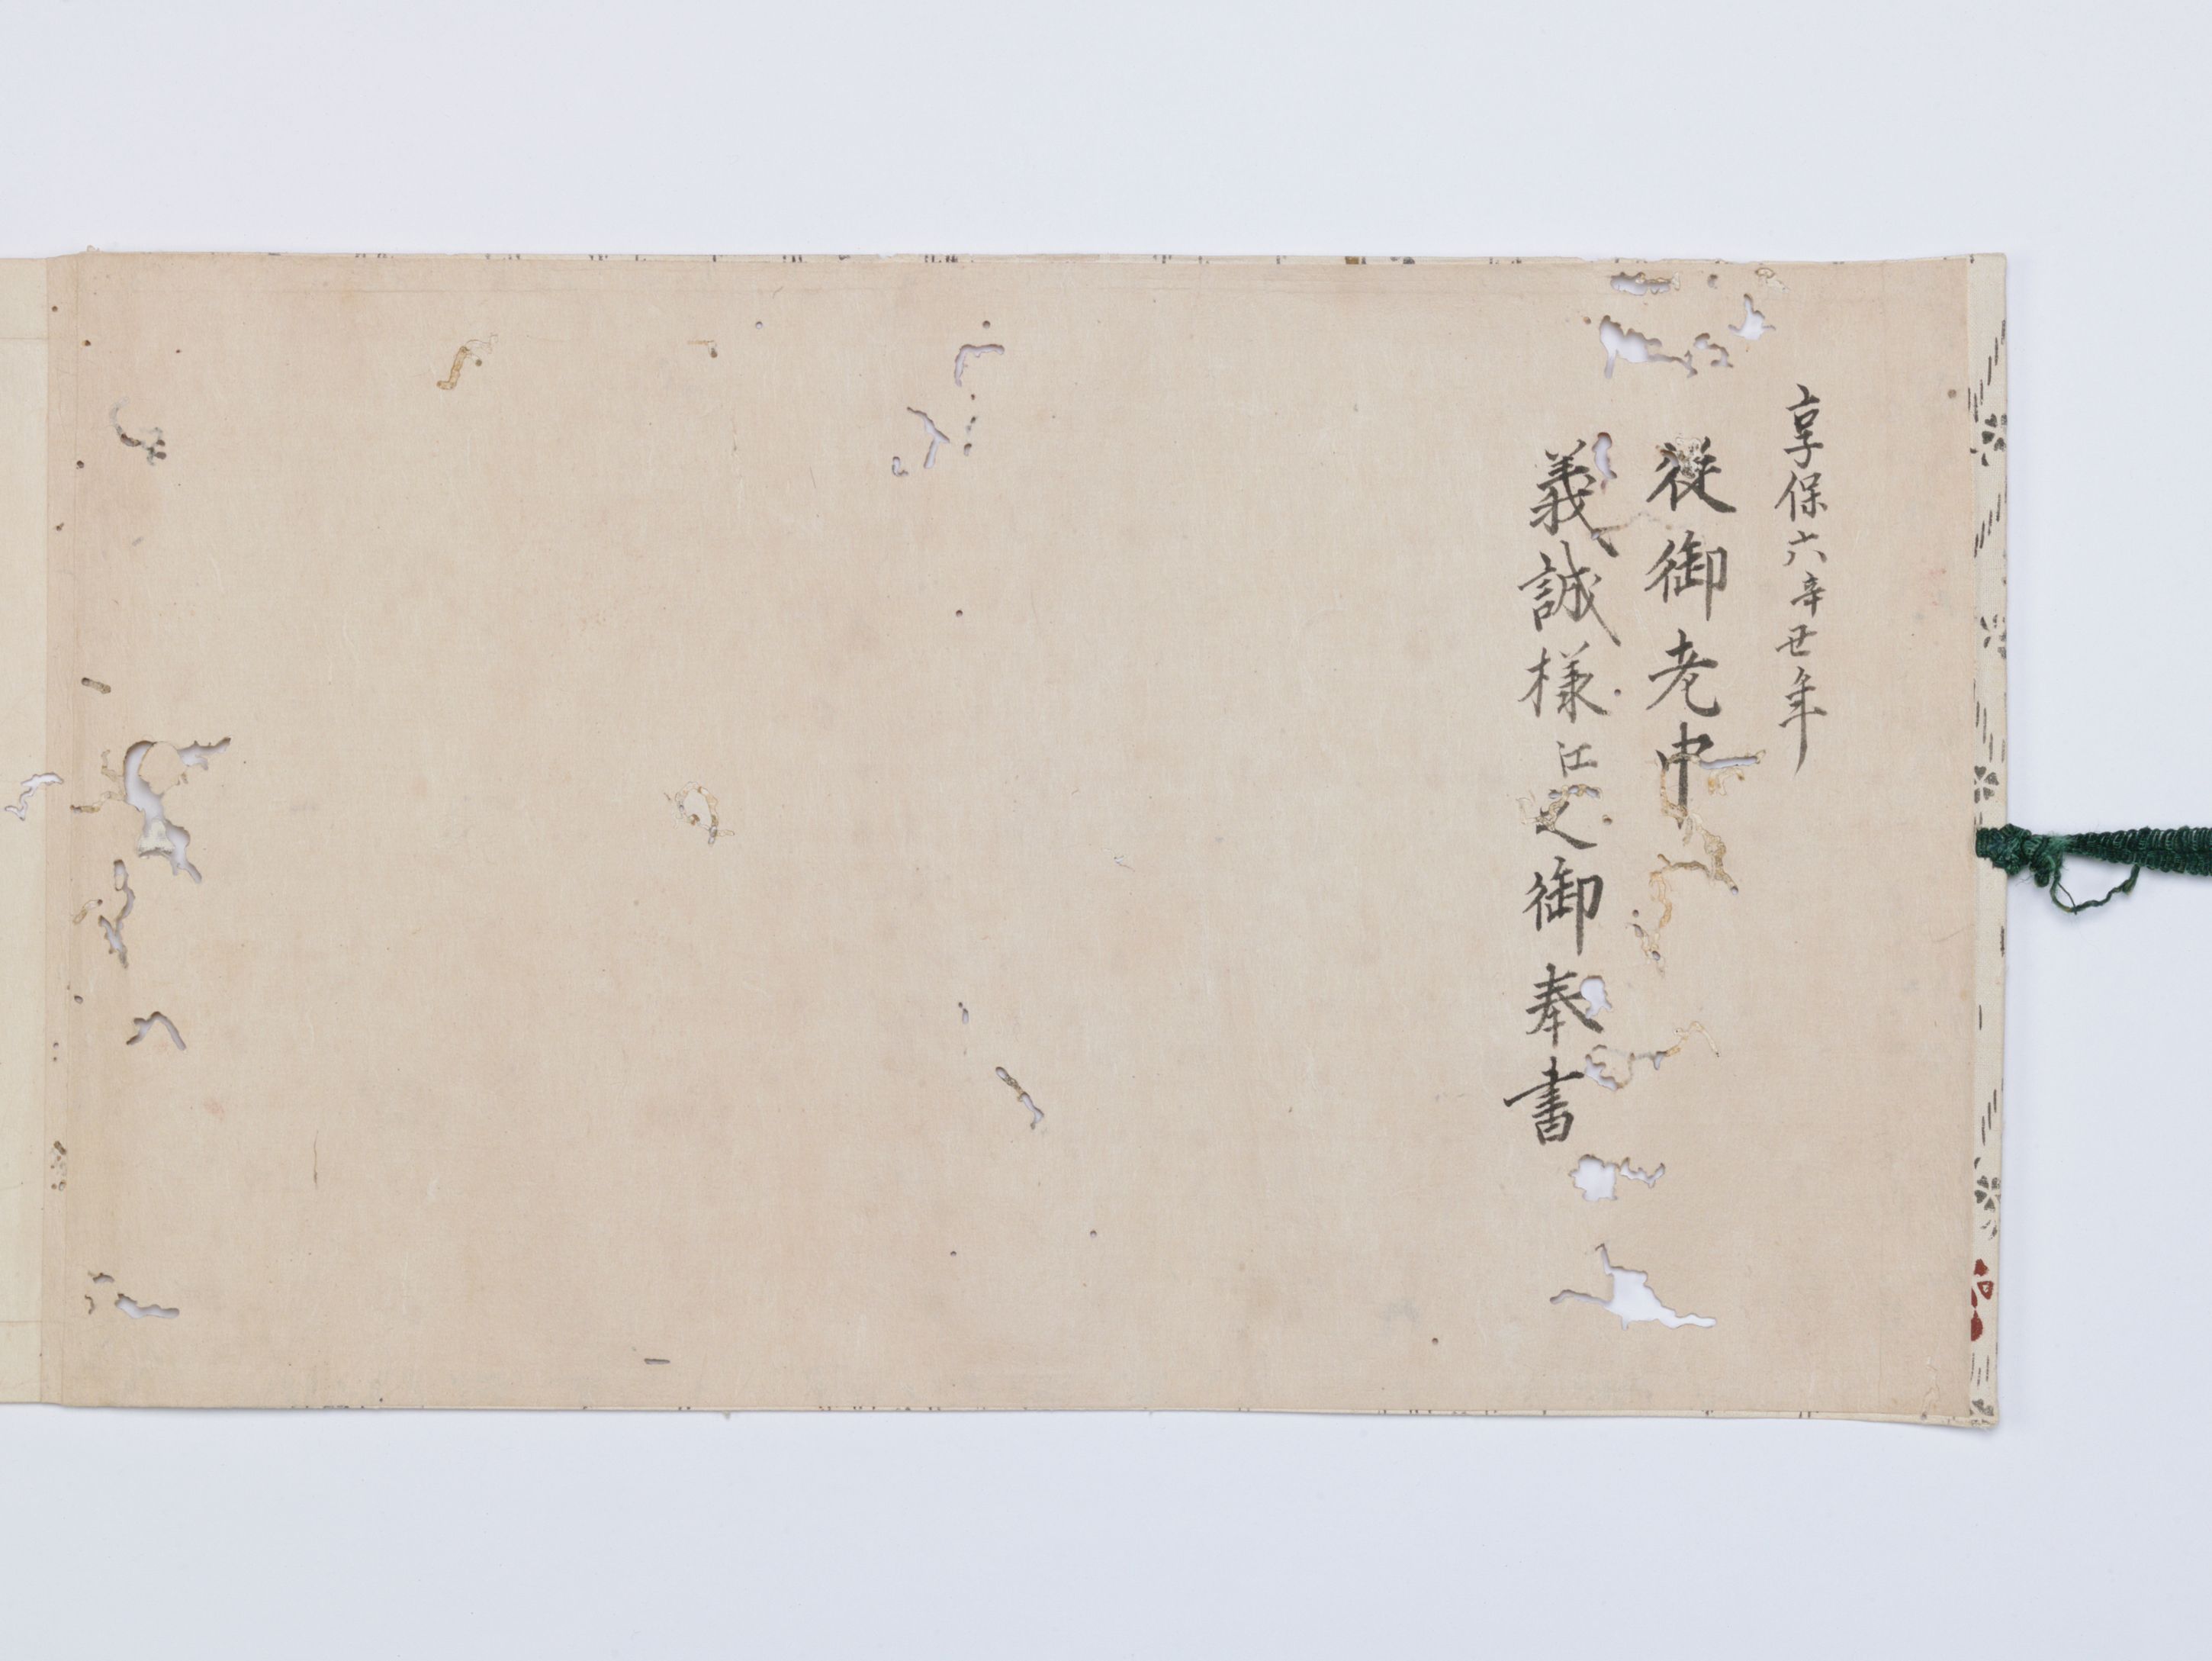 享保六辛丑年
従御老中
義誠様江之御奉書